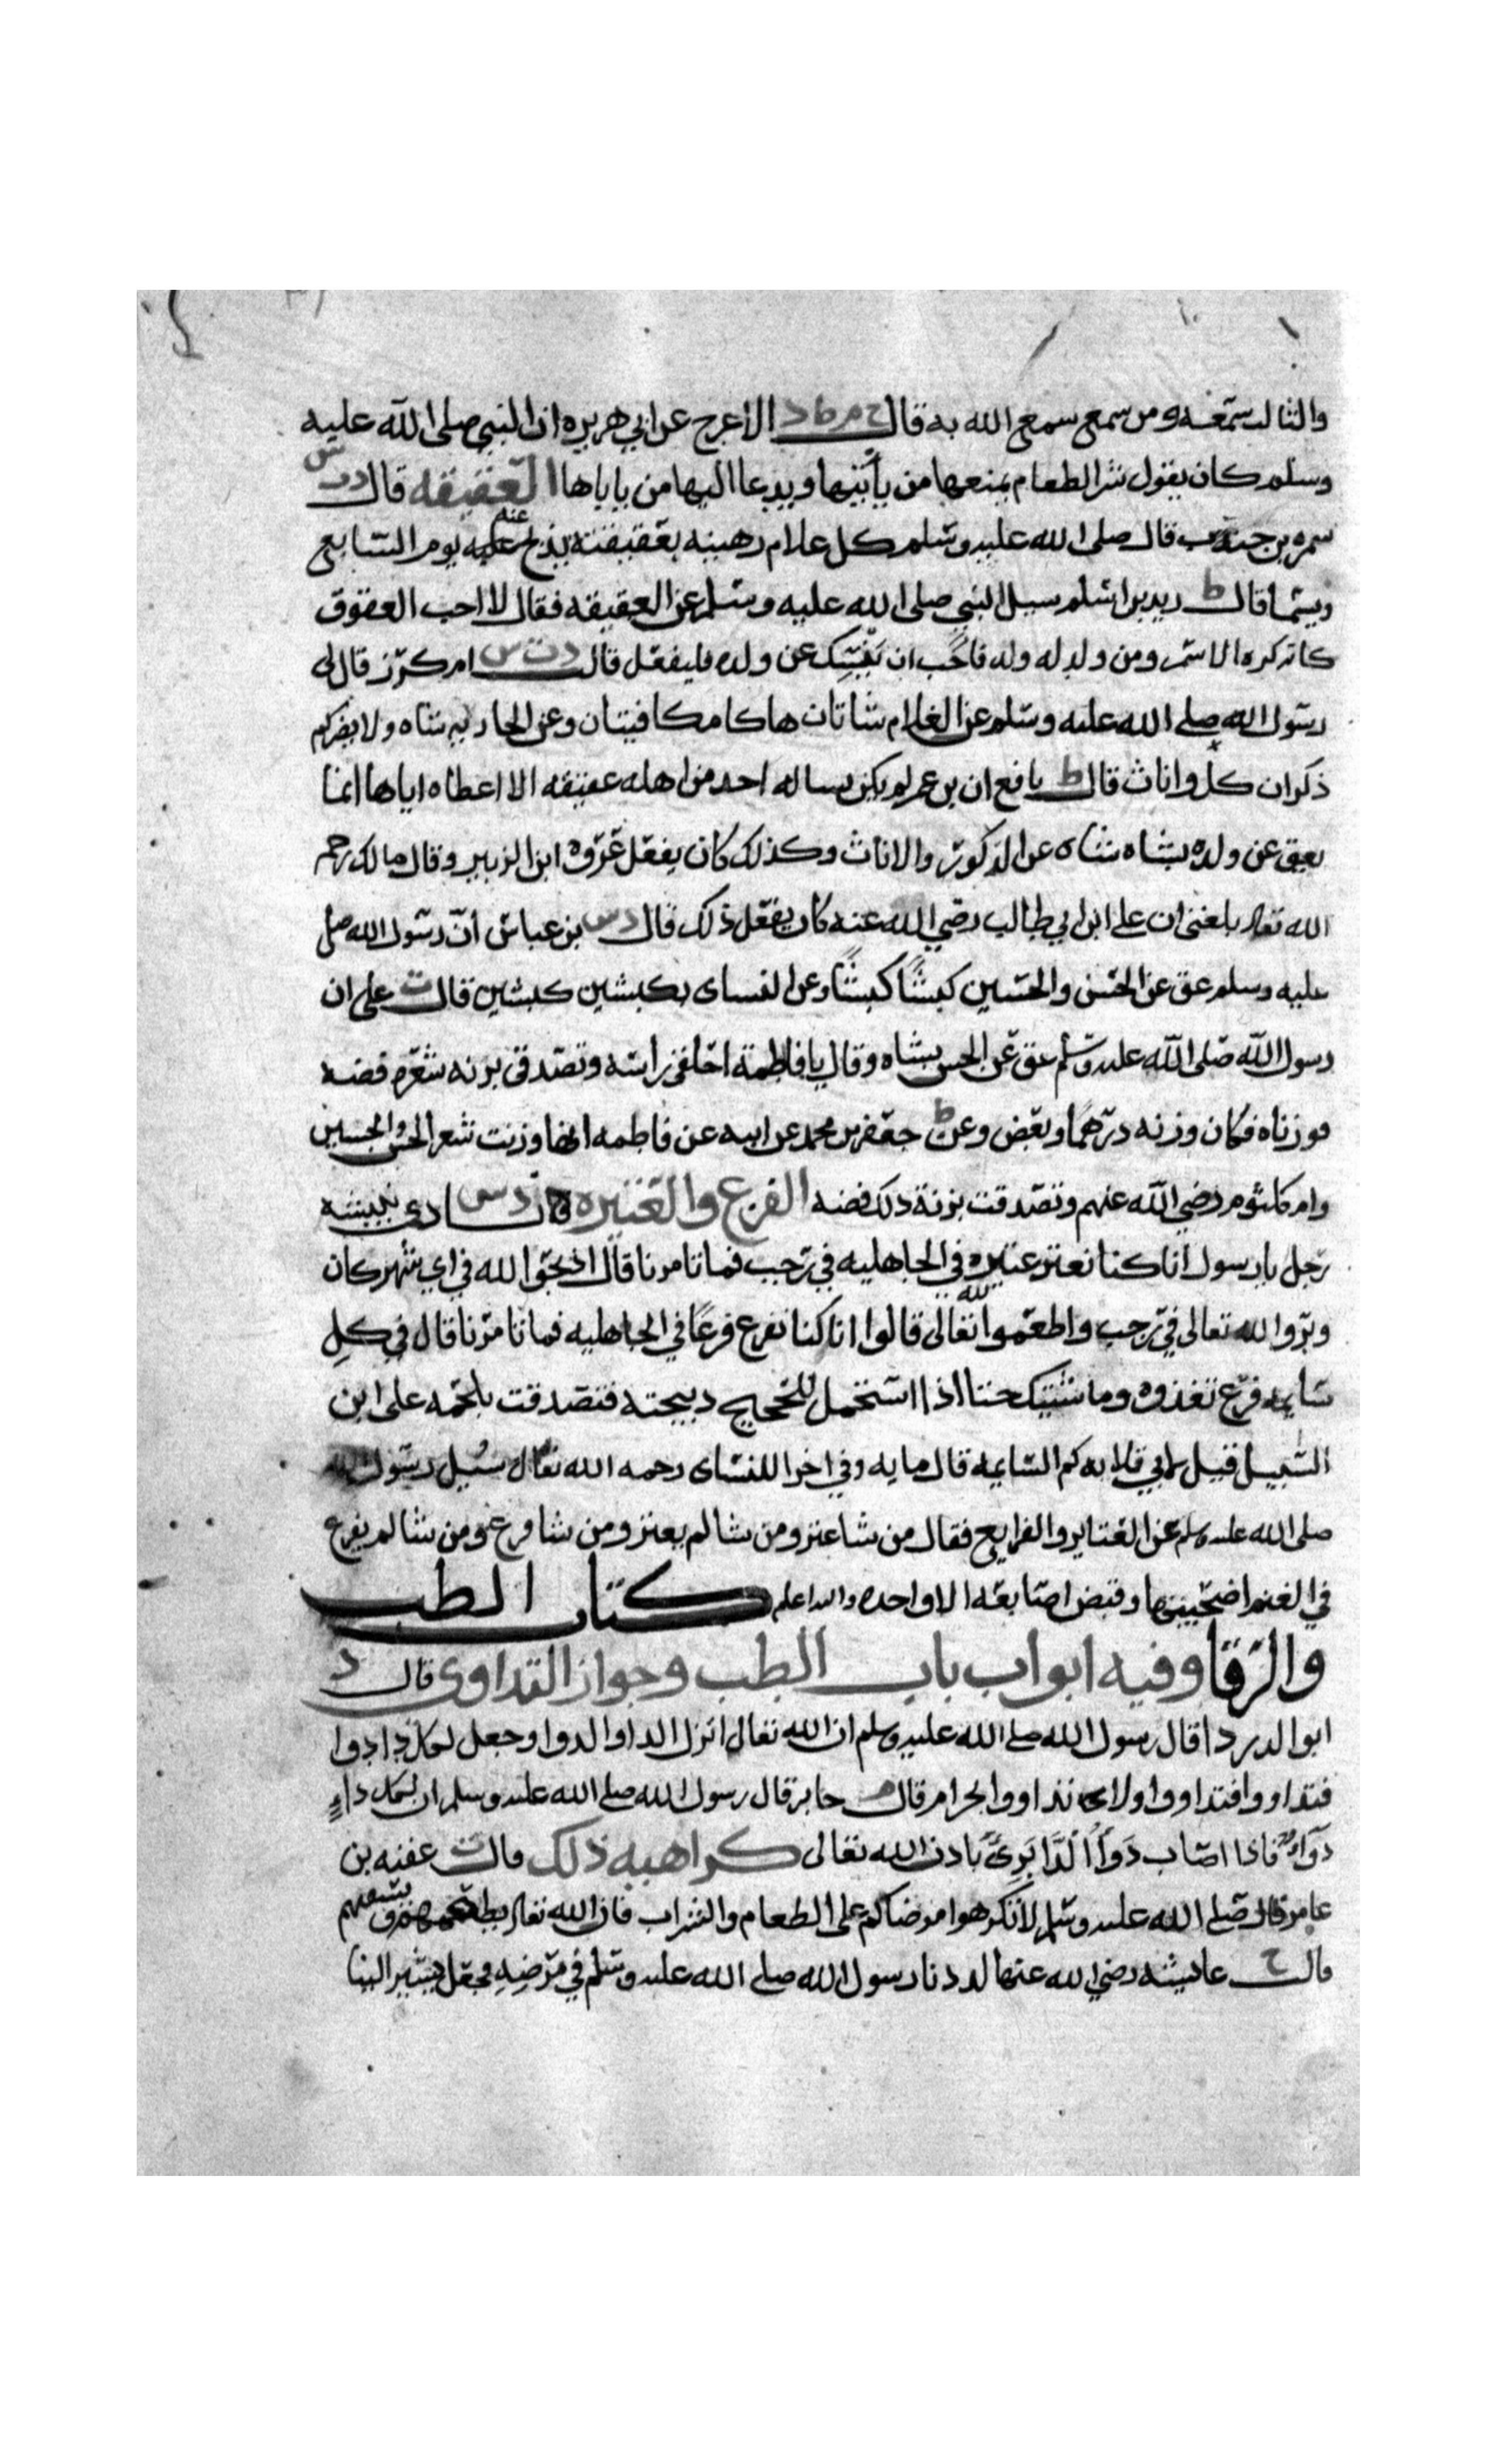 والثالث سمعه ومن سمع سمع الله به قال خ م ط د الاعرج عن ابي هريره ان النبي صلى الله عليه
وسلم كان يقول شر الطعام يمنعها من يأتيها ويدعا اليها من ياباها العقيقه قال د ت س
سمره بن جندب قال صلى الله عليه وسلم كل غلام رهينه بعقيقته يذبح عنه يوم السابع
ويسما قال ط زيد بن اسلم سيل النبي صلى الله عليه وسلم عن العقيقه فقال لا احب العقوق
كانه كره الاسم ومن ولد له ولد فاحب ان ينسك عن ولده فليفعل قال د ت س ام كرز قال لي
رسول الله صلى الله عليه وسلم عن الغلام شاتان هاكا مكافيتان وعن الجاريه شاه ولا يضركم
ذكران كل واناث قال ط نافع ان بن عمر لم يكن يساله احد من اهله عقيقه الا اعطاه اياها انما
يعق عن ولده بشاه شاه عن الذكور والاناث وكذلك كان يفعل عروه ابن الزبير وقال مالك رحمه
الله تعالى بلغني ان علي ابن ابي طالب رضي الله عنه كان يفعل ذلك قال د س بن عباس أن رسول الله صلى
عليه وسلم عق عن الحسن والحسين كبشًا كبشًا وعن النساى بكبشين كبشين قال ت علي ان
رسول الله صلى الله عليه وسلم عق عن الحسن بشاه وقال يا فاطمة احلقي راسه وتصدقي بزنه شعره فضه
فوزناه فكان وزنه درهمًا وبعض وعن ط جعفر بن محمد عن ابيه عن فاطمه انها وزنت شعر الحسن والحسين
وام كلثوم رضي الله عنهم وتصدقت بزنة ذلك فضه الفرع والعتيره قال د س نادى نبيشه
رجل يا رسول انا كنا نعتر عتيره في الجاهليه في رجب فما تامرنا قال اذبحوا لله في اي شهر كان
وبروا الله تعالى في رجب واطعموا لله تعالى قالوا انا كنا نفرع فرعًا في الجاهليه فما تامرنا قال في كل
سايمه فرع تغذوه وما شيتك حتا اذا استحمل للحجيج ذبيحته فتصدقت بلحمه على ابن
السبيل فقيل لابي قلابه كم السايمه قال مايه وفي اخرا للنساى رحمه الله تعالى سُيل رسول الله
صلى الله عليه وسلم عن العتاير والفرايع فقال من شا عتر ومن شا لم يعتر ومن شا فرع ومن شا لم يفرع
في الغنم اضحيتها وقبض اصابعه الا واحده والله اعلم كتاب الطب
والرقا وفيه ابواب باب الطب وجواز التداوى قال د
ابو الدردا قال رسول الله صلى الله عليه وسلم ان الله تعالى انزل الدا والدوا وجعل لكل دا دوا
فتداووا فتداووا ولا تداووا بحرام قال م جابر قال رسول الله صلى الله عليه وسلم ان لكل داءٍ
دَوَآءٌ فاذا اصاب دَوَآُ الدَّا بَرِئَ باذن الله تعالى كراهيه ذلك قال ت عقبه بن
عامر قال صلى الله عليه وسلم لا تكرهوا مرضاكم على الطعام والشراب فان الله تعالى يطعمهم ويسقيهم
قال خ عايشه رضي الله عنها لددنا رسول الله صلى الله عليه وسلم في مَرَضِهِ فجعل يشير الينا